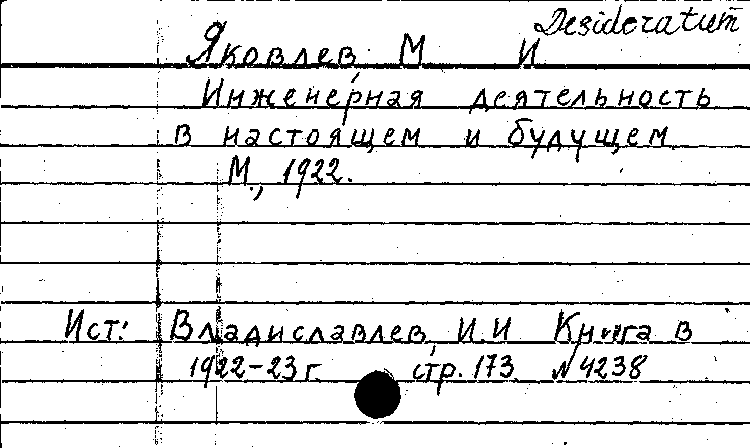 Desideratum
Яковлев, М И
Инженерная деятельность
в настоящем и будущем
М., 1922.
Ист: Владиславлев, И.И Книга в
1922-23 г. стр. 173 №4238